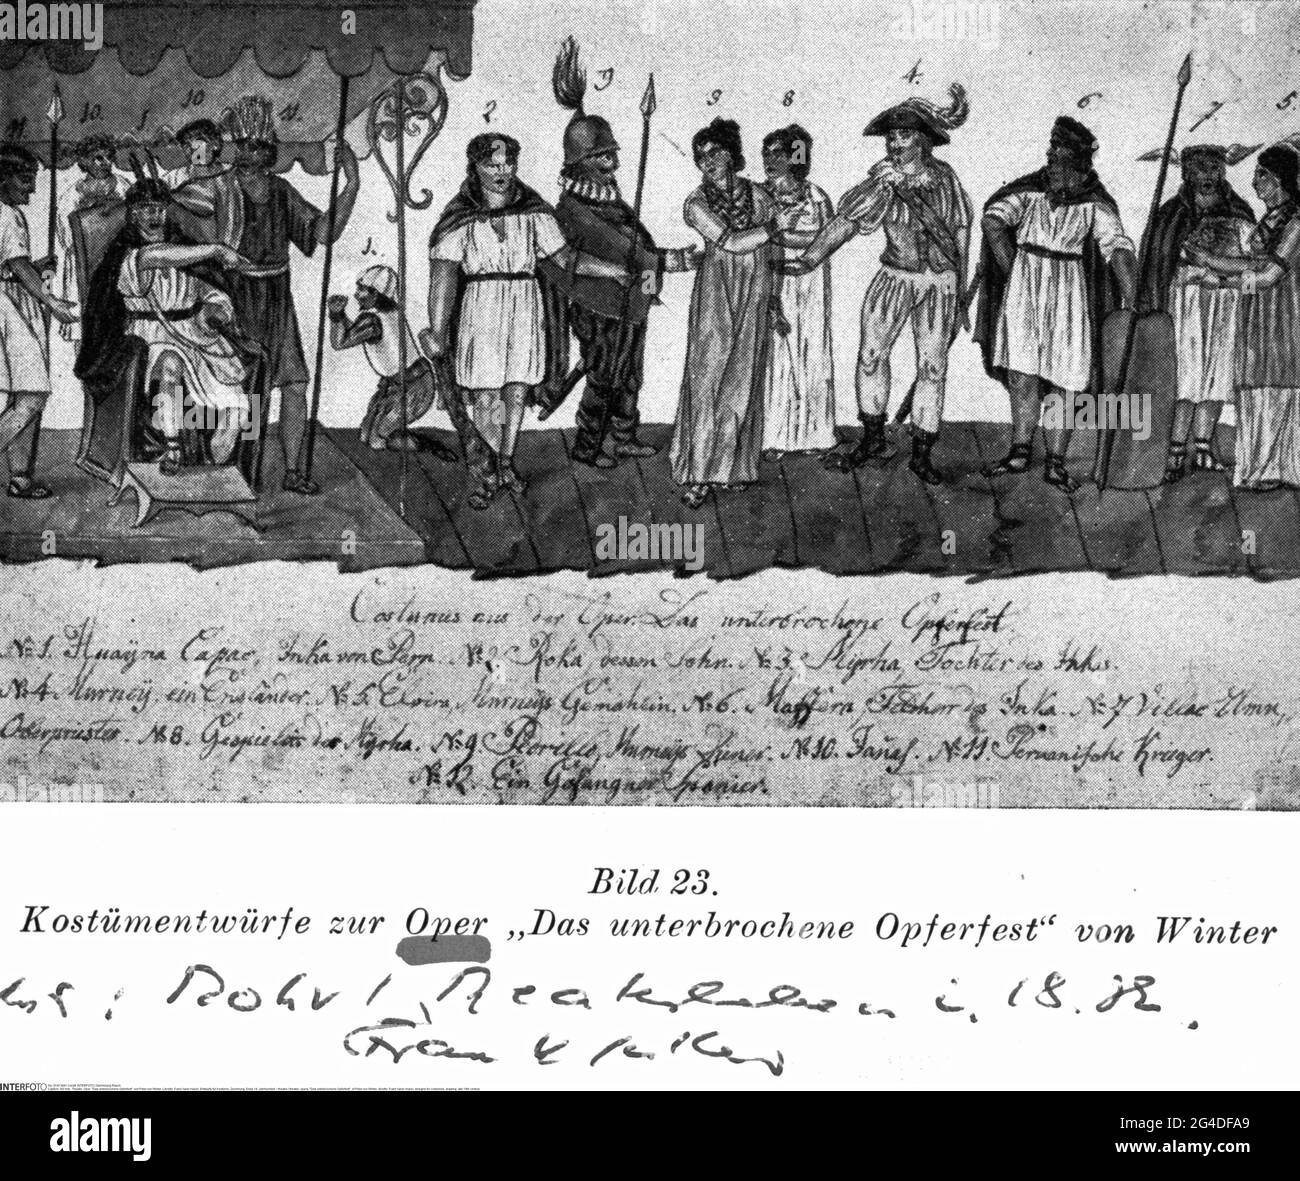 11. 10. 1. 10 11. 1. 2. 9 9 8 4. 6 7 5.
Costumes aus der Oper: Das unterbrochene Opferfest.
No 1. Huayna Capac, Inka von Perp. No 2. Roka, dessen Sohn. No 3. Myrha, Tochter des Inkas.
No 4. Murney, ein Engländer. No 5. Elvira, Murneys Gemahlin. No 6. Maffern, Feldherr des Inka. No 7 Villac Umn,
Oberpriester. No 8. Gespielin der Myrha. No 9. Murneys Diener. No 10. No 11. Peruanische Krieger.
No 12. Ein Gefangner Spanier.
Bild 23.
Kostümentwürfe zur Oper „Das unterbrochene Opferfest“ von Winter
i. 18. Jh.
Frankfurter
INTERFOTO
alamy
Image ID: 2G4DFA9
www.alamy.com